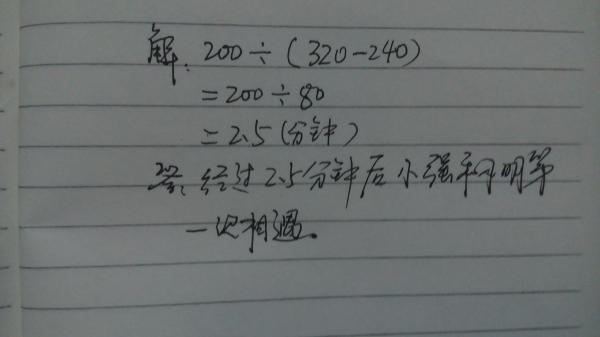 解：200÷(320-240)
=200÷80
=2.5(分钟)
答：经过2.5分钟后小强和小明第
一次相遇。